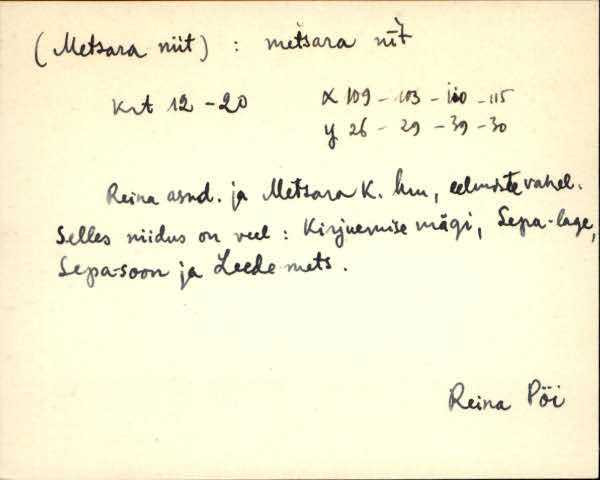 (Metsara niit) : metsara nīt̀
Krt 12 - 20 X 109 - 103 - 110 - 115
y 26 - 29 - 39 - 30
Reina asnd. ja Metsara K. hm, eelmiste vahel.
Selles niidus on veel : Kirjuemise mägi, Sepa-lage,
Sepa-soon ja Leede mets.
Reina Pöi